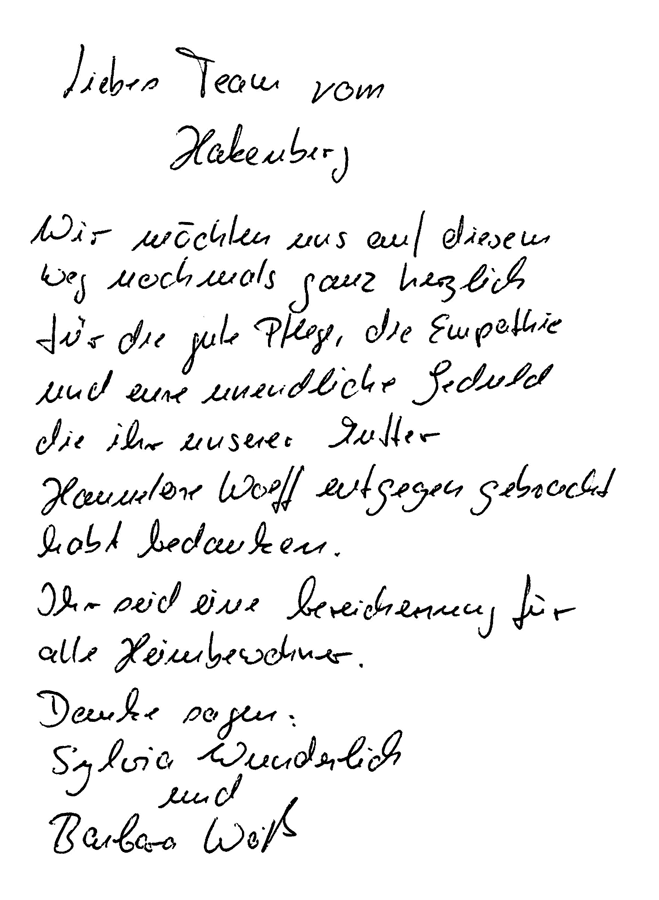 Liebes Team vom
Hakenberg
Wir möchten uns auf diesem
weg nochmals ganz herzlich
für die gute Pflege, die Empathie
und eure unendliche Geduld
die ihr unserer Mutter
Hannelore entgegen gebracht
habt bedanken.
Ihr seid eine bereicherung für
alle Heimbewohner.
Danke sagen:
Sylvia Wunderlich
und
Barbara Weiß